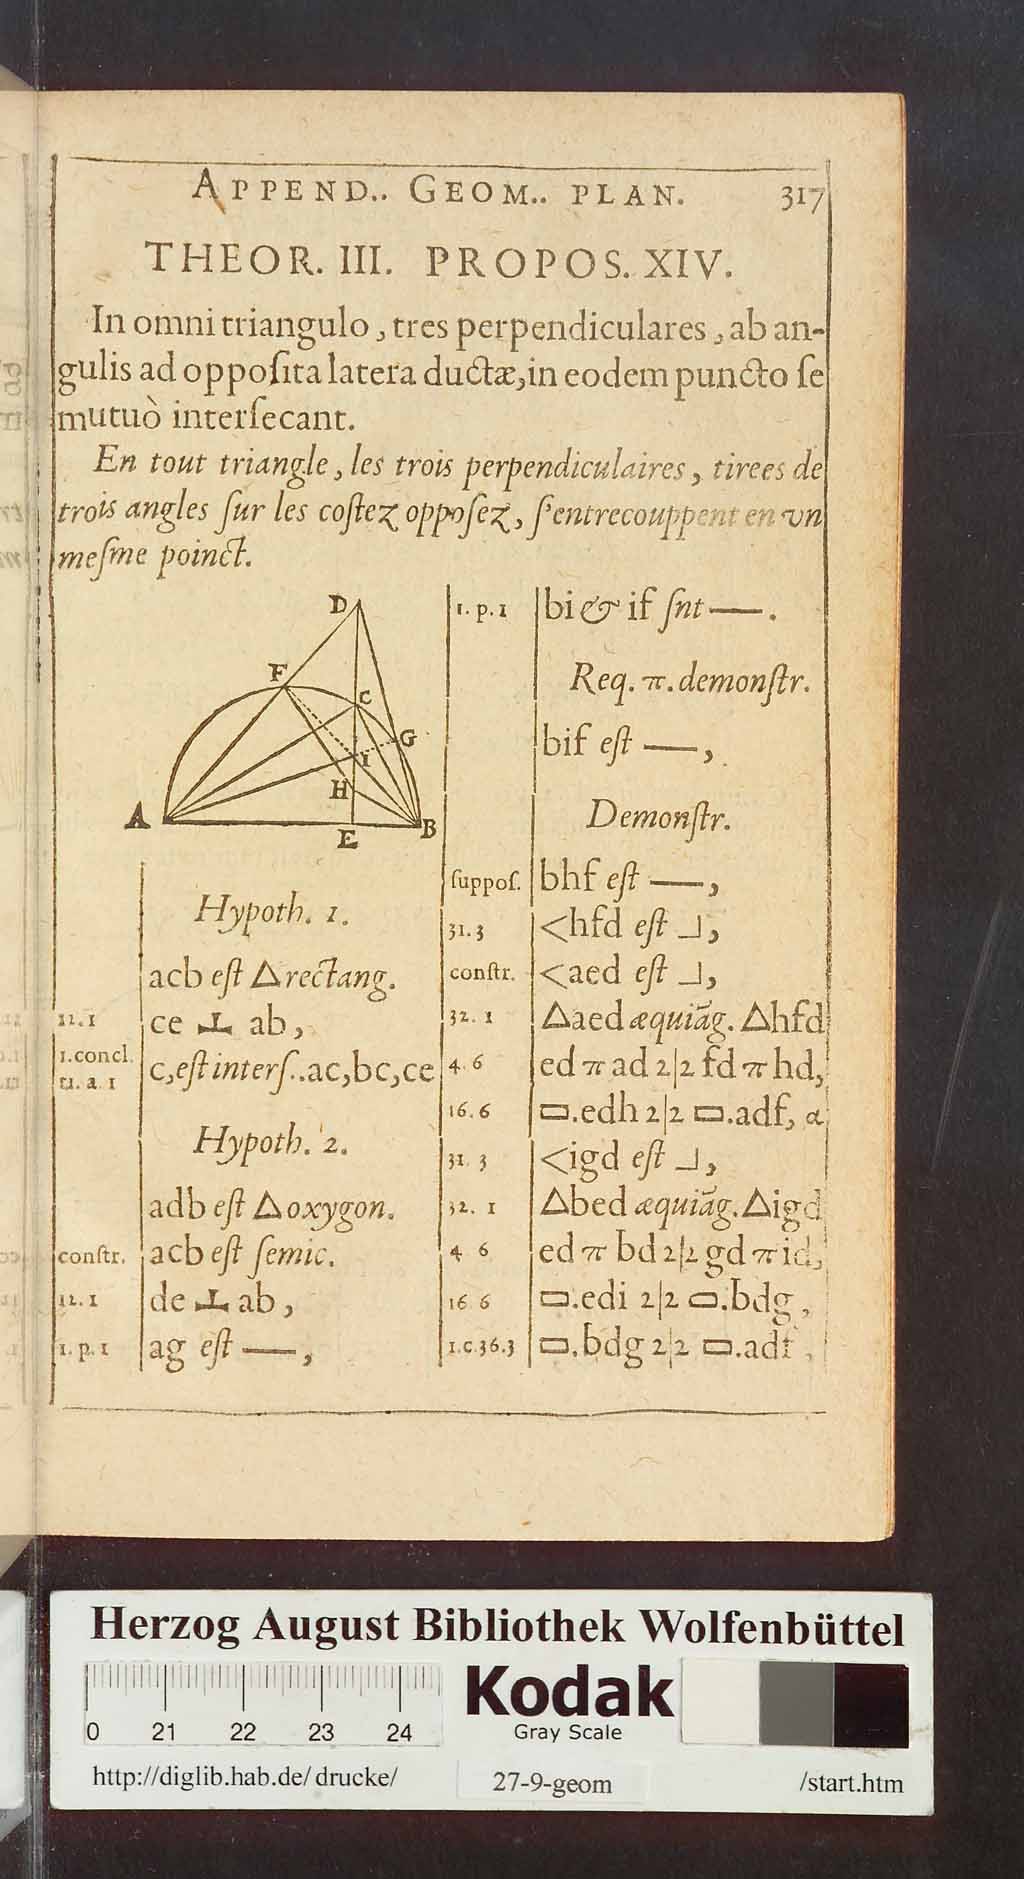 APPEND.. GEOM.. PLAN. 317
THEOR. III. PROPOS. XIV.
In omni triangulo, tres perpendiculares, ab an-
gulis ad oppoſita latera ductæ, in eodem puncto ſe
mutuò interſecant.
En tout triangle, les trois perpendiculaires, tirees de
trois angles ſur les coſtez oppoſez, ſ'entrecouppent en vn
meſme poinct.
D
F
C
G
I
H
A
E
B
Hypoth. 1.
acb eſt △ rectang.
12.1 ce ⊥ ab,
1.concl. 
11. a. 1 c, eſt interſ..ac,bc,ce
Hypoth. 2.
adb eſt △ oxygon.
conſtr. acb eſt ſemic.
12.1 de ⊥ ab,
1. p. 1 ag eſt —,
1. p. 1 bi & if ſnt —.
Req. π. demonſtr.
bif eſt —,
Demonſtr.
ſuppoſ. bhf eſt —,
31.3 <hfd eſt ⅃,
conſtr. <aed eſt ⅃,
32. 1 △aed æquiāg. △hfd
4. 6 ed π ad 2|2 fd π hd,
16.6 ▭.edh 2|2 ▭.adf, α
31. 3 <igd eſt ⅃,
32. 1 △bed æquiāg. △igd
4 6 ed π bd 2|2 gd π id,
16 6 ▭.edi 2|2 ▭.bdg,
1.c.36.3 ▭.bdg 2|2 ▭.adf,
Herzog August Bibliothek Wolfenbüttel
0 21 22 23 24
Kodak
Gray Scale
http://diglib.hab.de/drucke/ 27-9-geom /start.htm